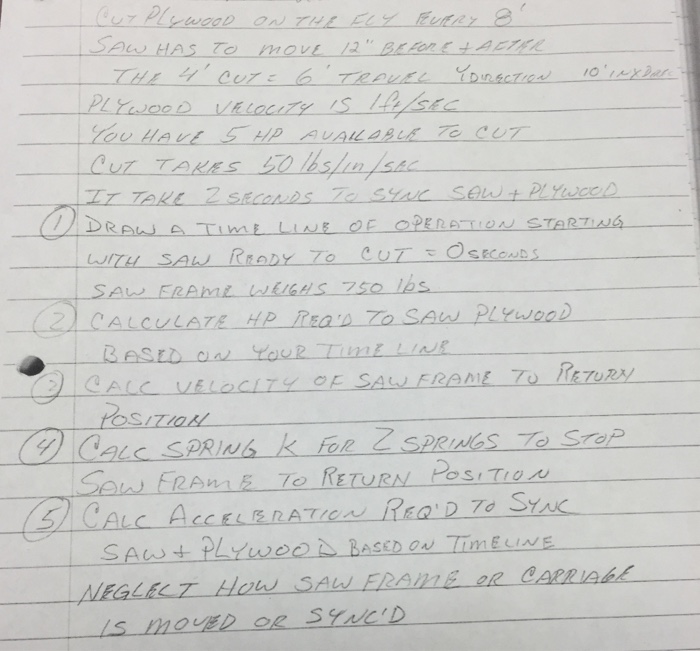 CUT PLYWOOD ON THE FLY EVERY 8'
SAW HAS TO MOVE 12" BEFORE + AFTER
THE 4' CUT = 6' TRAVEL Y DIRECTION 10' IN X DIREC
PLYWOOD VELOCITY IS 1ft/SEC
YOU HAVE 5 HP AVAILABLE TO CUT
CUT TAKES 50 lbs/in/SEC
IT TAKE 2 SECONDS TO SYNC SAW + PLYWOOD
① DRAW A TIME LINE OF OPERATION STARTING
WITH SAW READY TO CUT = 0 SECONDS
SAW FRAME WEIGHS 750 lbs
② CALCULATE HP REQ'D TO SAW PLYWOOD
BASED ON YOUR TIME LINE
③ CALC VELOCITY OF SAW FRAME TO RETURN
POSITION
④ CALC SPRING K FOR 2 SPRINGS TO STOP
SAW FRAME TO RETURN POSITION
⑤ CALC ACCELERATION REQ'D TO SYNC
SAW + PLYWOOD BASED ON TIMELINE
NEGLECT HOW SAW FRAME OR CARRIAGE
IS MOVED OR SYNC'D